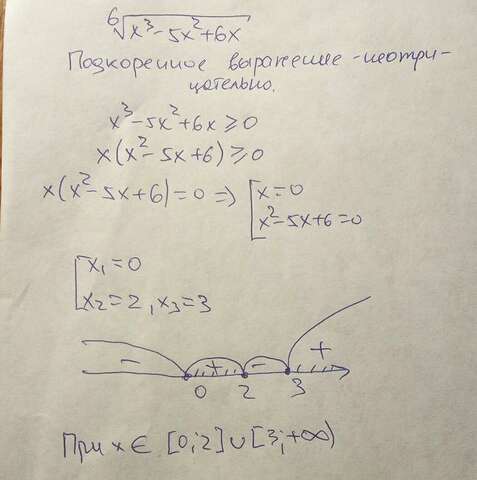 ⁶√(x³-5x²+6x)
Подкоренное выражение - неотри-
цательно.
x³-5x²+6x ≥ 0
x(x²-5x+6) ≥ 0
x(x²-5x+6)=0 => [x=0
x²-5x+6=0
[x₁=0
x₂=2, x₃=3
- + - +
0 2 3
При x ∈ [0;2]∪[3;+∞)